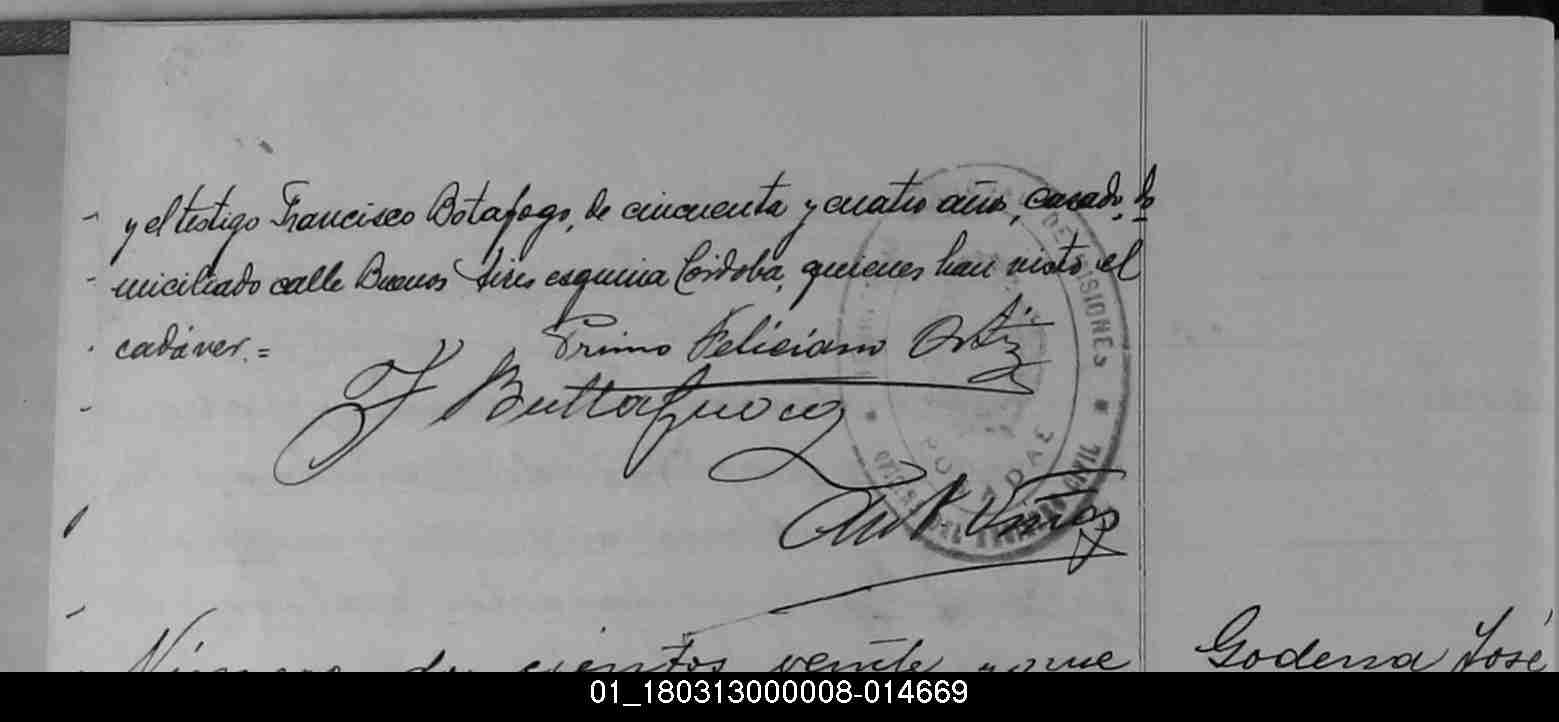 y el testigo Francisco Botafogo, de cincuenta y cuatro años, casado, do
miciliado calle Buenos Aires esquina Córdoba, quienes han visto el
cadáver. =
Primo Feliciano Ortiz
F Buttafuoco
DIVISIONES * CIVIL
POSADAS
cientos veinte nueve
Godena José
01_180313000008-014669